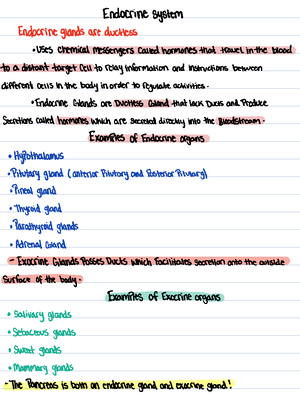 Endocrine system
Endocrine glands are ductless
• Uses chemical messengers called hormones that travel in the blood
to a distant target cell to relay information and instructions between
different cells in the body in order to regulate activities.
• Endocrine Glands are Ductless Gland that lack Ducts and Produce
Secretions called hormones which are secreted directly into the Bloodstream.
Examples of Endocrine organs
• Hypothalamus
• Pituitary gland (anterior Pituitary and Posterior Pituitary)
• Pineal gland
• Thyroid gland
• Parathyroid glands
• Adrenal Gland
- Exocrine Glands Posses Ducts which facilitates secretion onto the outside
surface of the body.
Examples of Exocrine organs
• Salivary glands
• Sebaceous glands
• Sweat glands
• Mammary glands
- The Pancreas is both an endocrine gland and exocrine gland!